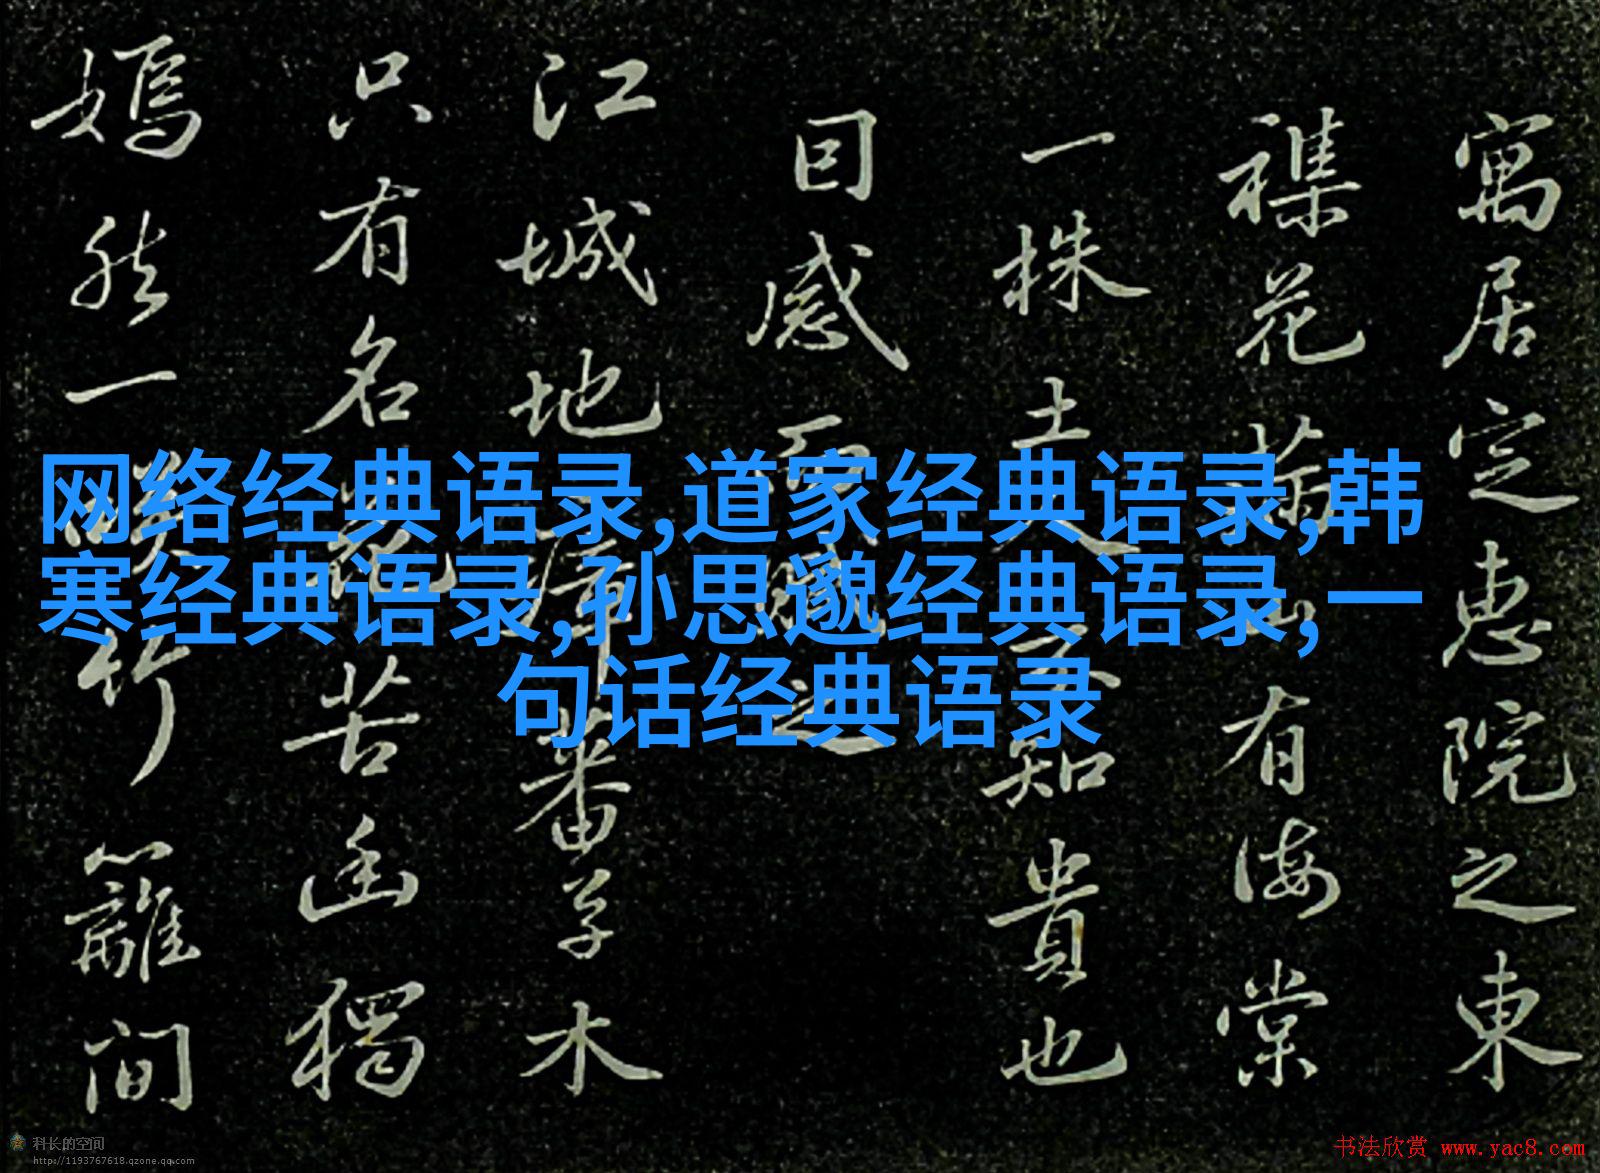 寓居定惠院之東
襍花滿山有海棠
一株土人不知貴也
囙感而賦之
江城地瘴蕃草木
只有名花苦幽獨
嫣然一笑竹籬間
网络经典语录,道家经典语录,韩
寒经典语录,孙思邈经典语录,一
句话经典语录
科长的空间
http://1193767618.qzone.qq.com
书法欣赏 www.yac8.com